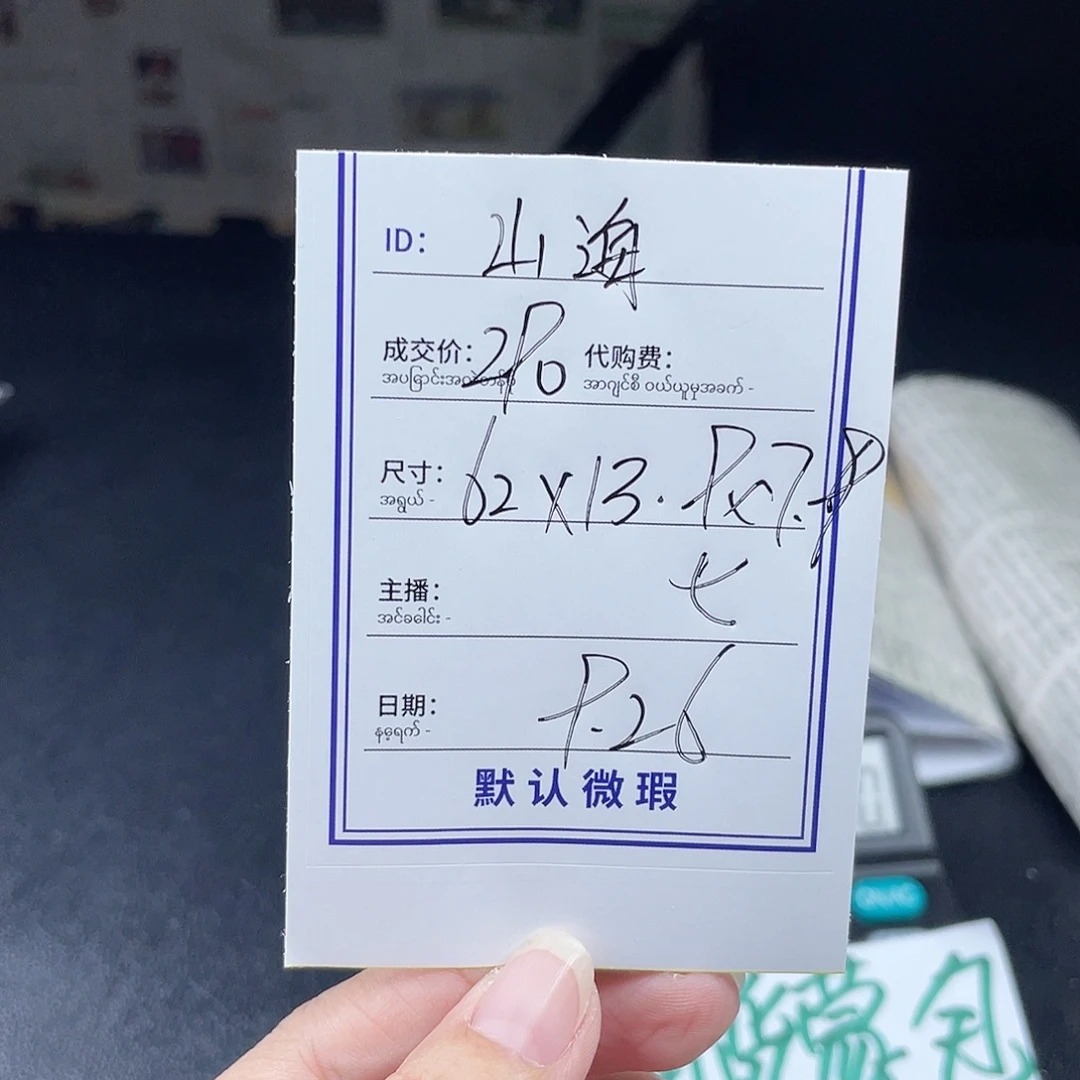 ID: 山海
成交价: 280 代购费:
အာဂျင်စီ ဝယ်ယူမှုအခက် -
尺寸: 62×13.8×7.8
အရွယ် -
主播: 七
အင်ခေါင်း -
日期: 8.26
နေ့ရက် -
默认微瑕